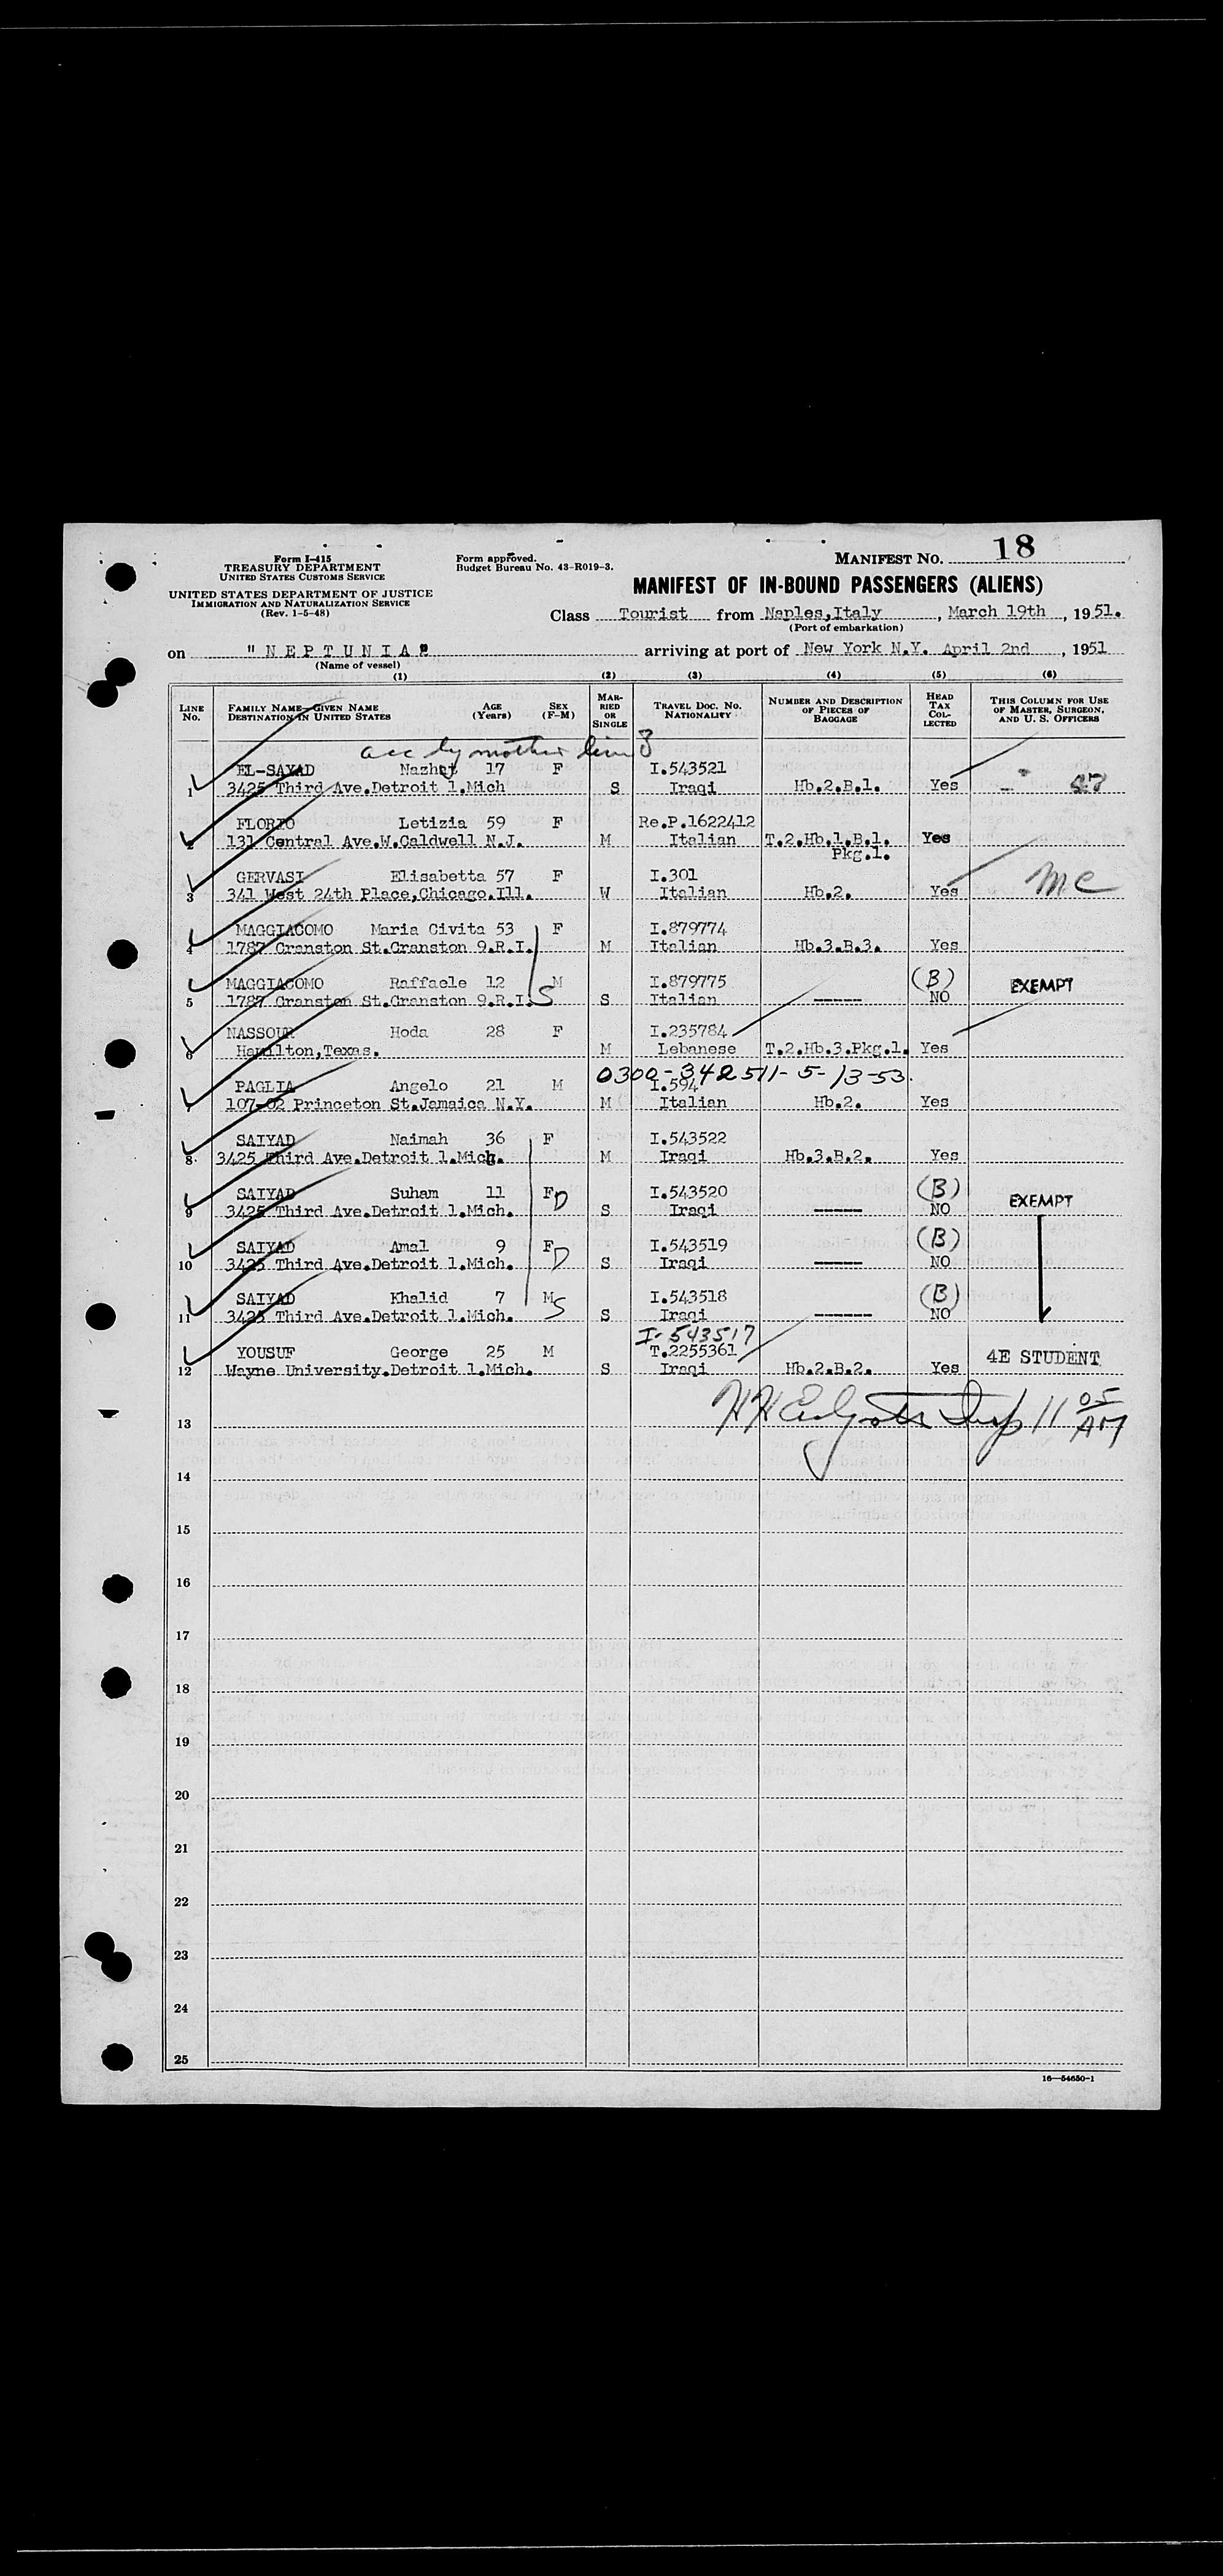 Form I-415
TREASURY DEPARTMENT
UNITED STATES CUSTOMS SERVICE
UNITED STATES DEPARTMENT OF JUSTICE
IMMIGRATION AND NATURALIZATION SERVICE
(Rev. 1-5-48)
Form approved.
Budget Bureau No. 43-R019-3.
MANIFEST NO. 18
MANIFEST OF IN-BOUND PASSENGERS (ALIENS)
Class Tourist from Naples,Italy, March 19th, 1951.
(Port of embarkation)
on "NEPTUNIA" arriving at port of New York N.Y. April 2nd, 1951
(Name of vessel)
(1) (2) (3) (4) (5) (6)
LINE No. FAMILY NAME—GIVEN NAME DESTINATION IN UNITED STATES AGE (Years) SEX (F-M) MARRIED OR SINGLE TRAVEL DOC. NO. NATIONALITY NUMBER AND DESCRIPTION OF PIECES OF BAGGAGE HEAD TAX COLLECTED THIS COLUMN FOR USE OF MASTER, SURGEON, AND U. S. OFFICERS
acc by mother line 8
EL-SAYAD Nazhat 17 F I.543521
1 3425 Third Ave.Detroit 1.Mich S Iraqi Hb.2.B.1. Yes
FLORIO Letizia 59 F Re.P.1622412
2 131 Central Ave.W.Caldwell N.J. M Italian T.2.Hb.1.B.1. Yes
Pkg.1.
GERVASI Elisabetta 57 F I.301
3 341 West 24th Place,Chicago.Ill. W Italian Hb.2. Yes
MAGGIACOMO Maria Civita 53 F I.879774
4 1787 Cranston St.Cranston 9.R.I. M Italian Hb.3.B.3. Yes
MAGGIACOMO Raffaele 12 M I.879775 (B) EXEMPT
5 1787 Cranston St.Cranston 9.R.I. S S Italian ----- NO
NASSOUR Hoda 28 F I.235784
6 Hamilton,Texas. M Lebanese T.2.Hb.3.Pkg.1. Yes
0300-342511-5-13-53.
PAGLIA Angelo 21 M I.594
7 107-02 Princeton St.Jamaica N.Y. M Italian Hb.2. Yes
SAIYAD Naimah 36 F I.543522
8 3425 Third Ave.Detroit 1.Mich. M Iraqi Hb.3.B.2. Yes
SAIYAD Suham 11 F D I.543520 (B) EXEMPT
9 3425 Third Ave.Detroit 1.Mich. S Iraqi ----- NO
SAIYAD Amal 9 F D I.543519 (B)
10 3425 Third Ave.Detroit 1.Mich. S Iraqi ----- NO
SAIYAD Khalid 7 M S I.543518 (B)
11 3425 Third Ave.Detroit 1.Mich. S Iraqi ------ NO
I-543517
YOUSUF George 25 M T.2255361 4E STUDENT
12 Wayne University.Detroit 1.Mich. S Iraqi Hb.2.B.2. Yes
Insp 11 05 AM
13
14
15
16
17
18
19
20
21
22
23
24
25
16—54650-1